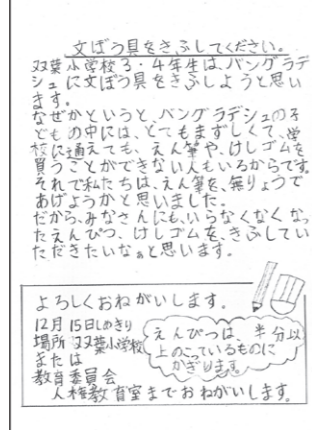 文ぼう具をきふしてください。
双葉小学校3・4年生は、バングラデ
シュに文ぼう具をきふしようと思い
ます。
なぜかというと、バングラデシュの子
どもの中には、とてもまずしくて、学
校に通えても、えん筆や、けしゴムを
買うことができない人もいるからです。
それで私たちは、えん筆を、無りょうで
あげようかと思いました。
だから、みなさんにも、いらなくなくなっ
たえんぴつ、けしゴムを、きふしてい
ただきたいなぁと思います。
よろしくおねがいします。
12月15日しめきり
場所 双葉小学校
または
教育委員会
人権教育室までおねがいします。
えんぴつは、半分以
上のこっているものに
かぎります。